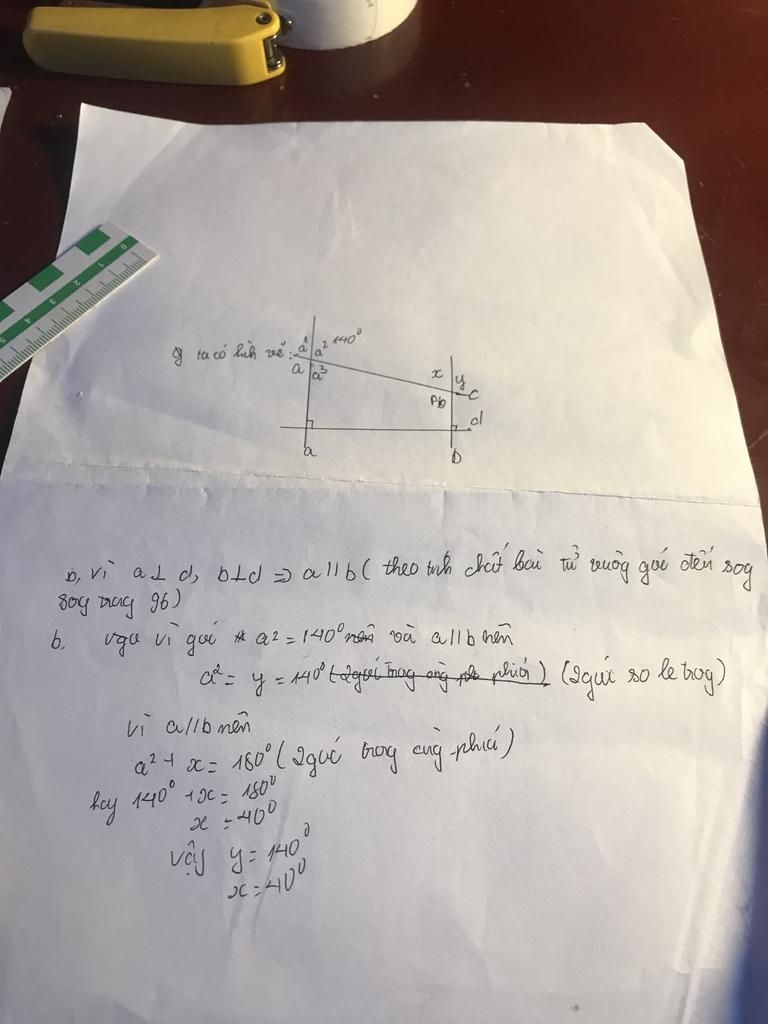 ta có hình vẽ :
a¹ a² 140⁰
a a³
x y
c
d
a b
b, vì a ⊥ d, b ⊥ d => a // b ( theo tính chất bài từ vuông góc đến sog
sog trag 96)
b. vì góc a² = 140⁰ nên và a // b nên
a² = y = 140⁰ (2 góc trog cùg phía) (2 góc so le trog)
vì a // b nên
a² + x = 180⁰ ( 2 góc trog cùg phía)
hay 140⁰ + x = 180⁰
x = 40⁰
vậy y = 140⁰
x = 40⁰